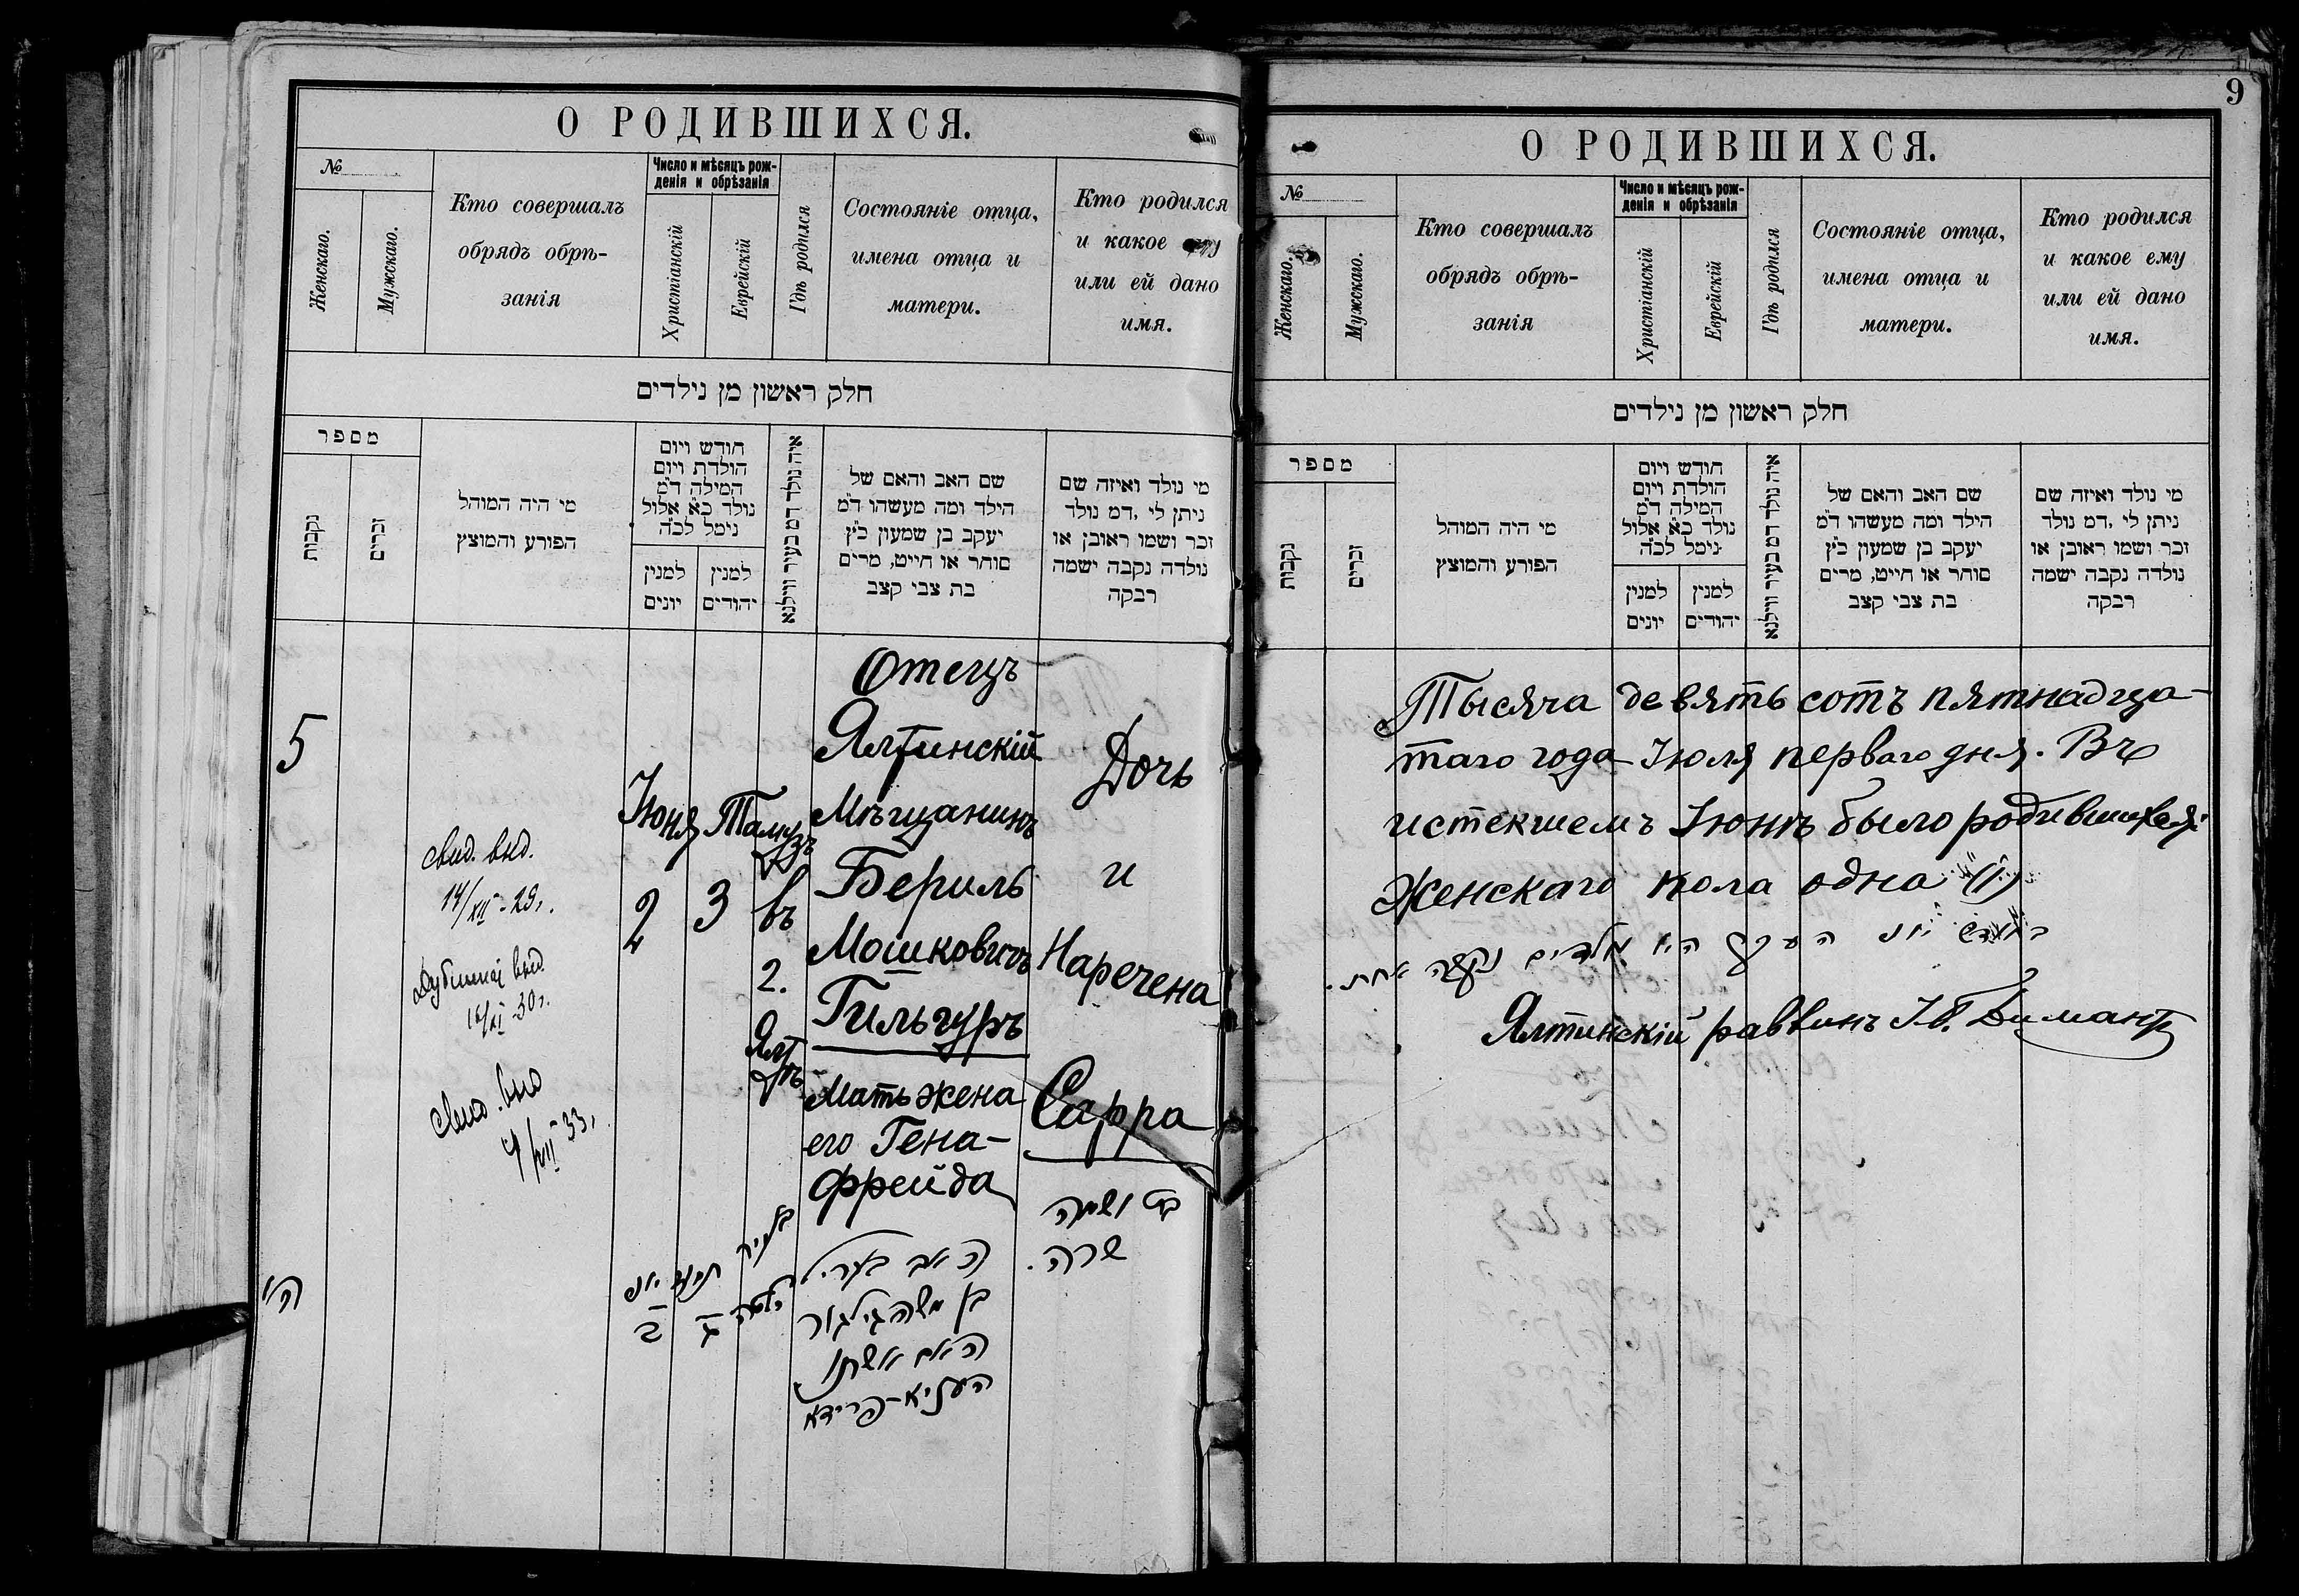 О РОДИВШИХСЯ.
№
Женскаго.
Мужскаго.
Кто совершалъ
обрядъ обрѣ-
занія
Число и мѣсяцъ рож-
денія и обрѣзанія
Христіанскій
Еврейскій
Гдѣ родился
Состояніе отца,
имена отца и
матери.
Кто родился
и какое ему
или ей дано
имя.
חלק ראשון מן נילדים
מספר
נקבות
זכרים
מי היה המוהל
הפורע והמוצץ
חודש ויום
הולדת ויום
המילה ד״מ
נולד כ״א אלול
נימל לכ״ה
למנין
יונים
למנין
יהודים
איה נולד דמ בעיר ווילנא
שם האב והאם של
הילד ומה מעשהו ד״מ
יעקב בן שמעון כ״ץ
סוחר או חייט, מרים
בת צבי קצב
מי נולד ואיזה שם
ניתן לי, דמ נולד
זכר ושמו ראובן או
נולדה נקבה ישמה
רבקה
5
свид. выд.
14/XII-29г.
Дубликат выд.
16/XI-30г.
свид. выд
4/VII 33г.
Іюня
2
Тамузъ
3
въ
г.
Ялт
ѣ
Отецъ
Ялтинскій
Мѣщанинъ
Бериль
Мошковичъ
Гильгуръ
Мать жена
его Гена-
Фрейда
Дочь
и
Наречена
Сарра
ה׳
יוני
ב
תמוז
ג
בעיר
יאלטה
האב בעריל
בן משה גילגור
האם אשתו
העניא-פריידא
בת ושמה
שרה.
9
О РОДИВШИХСЯ.
№
Женскаго.
Мужскаго.
Кто совершалъ
обрядъ обрѣ-
занія
Число и мѣсяцъ рож-
денія и обрѣзанія
Христіанскій
Еврейскій
Гдѣ родился
Состояніе отца,
имена отца и
матери.
Кто родился
и какое ему
или ей дано
имя.
חלק ראשון מן נילדים
מספר
נקבות
זכרים
מי היה המוהל
הפורע והמוצץ
חודש ויום
הולדת ויום
המילה ד״מ
נולד כ״א אלול
נימל לכ״ה
למנין
יונים
למנין
יהודים
איה נולד דמ בעיר ווילנא
שם האב והאם של
הילד ומה מעשהו ד״מ
יעקב בן שמעון כ״ץ
סוחר או חייט, מרים
בת צבי קצב
מי נולד ואיזה שם
ניתן לי, דמ נולד
זכר ושמו ראובן או
נולדה נקבה ישמה
רבקה
Тысяча девять сотъ пятнадца-
таго года Іюля перваго дня. Въ
истекшемъ Іюнѣ было родившихся:
Женскаго пола одна (1)
בחודש יוני העבר היו נולדים נקבה אחת.
Ялтинскій раввинъ І. В. Димантъ